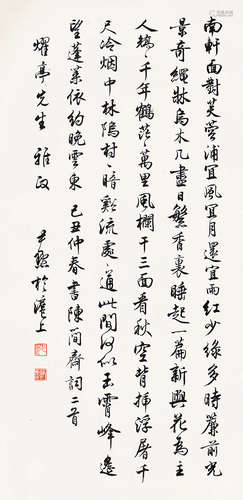 南軒面對芙蓉浦宜風宜月還宜雨紅少綠多時簾前光
景奇繩牀烏木几盡日繁香裏睡起一篇新與花為主
人矯〻千年鶴茫〻萬里風欄干三面看秋空背插浮屠千
尺冷烟中林塢村〻暗谿流處〻通此間何似玉霄峰遙
望蓬萊依約晚雲東 己丑仲春書陳簡齋詞二首
耀亭先生雅政
尹默於滬上